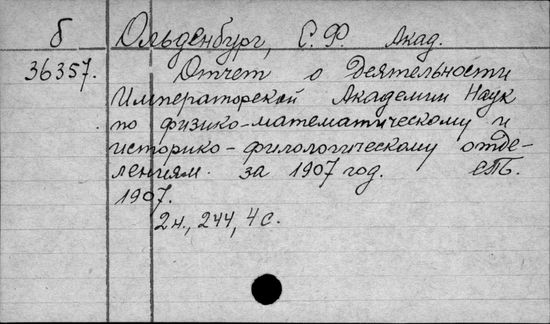 б Ольденбург, С. Ф. Акад.
36357. Отчет о деятельности
Императорской Академии Наук
по физико-математическому и
историко-филологическому отде-
лениям за 1907 год. СПб.
1907.
2н., 244, 4 с.